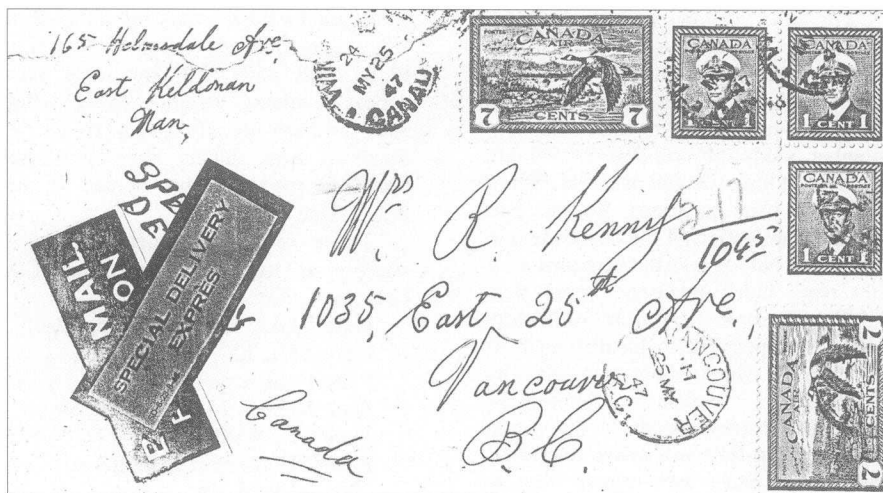 165 Helmsdale Ave.
East Keldonan
Man.
24
MY 25
47
CANAD
CANADA
AIR
7 CENTS 7
CANADA
1 CENT 1
CANADA
1 CENT 1
CANADA
1 CENT 1
CANADA
AIR
7 CENTS 7
MAIL
ON
SPECIAL DELIVERY
EXPRES
Mrs. R. Kenny
2-17
1045
1035, East 25th Ave.,
Vancouver
B.C.
Canada
VANCOUVER
25 MY
47